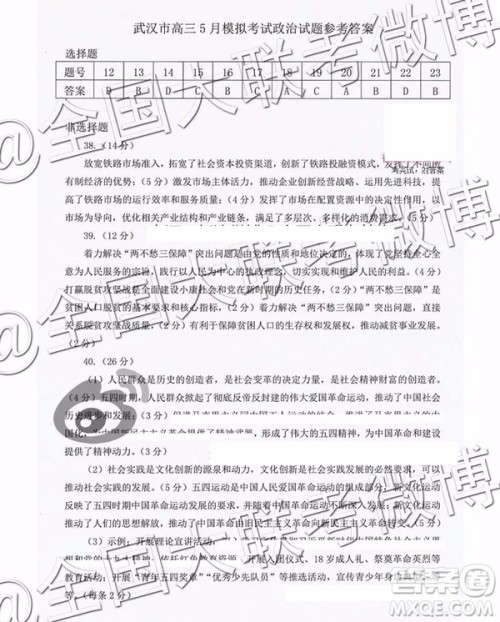 武汉市高三5月模拟考试政治试题参考答案
选择题
题号 12 13 14 15 16 17 18 19 20 21 22 23
答案 D B D C B C A C A B D B
非选择题
38.（14分）
放宽铁路市场准入，拓宽了社会资本投资渠道，创新了铁路投融资模式，发挥了不同所
有制经济的优势；（5分）激发市场主体活力，推动企业创新经营战略、运用先进科技，提
高了铁路市场的运行效率和服务质量；（5分）发挥了市场在配置资源中的决定性作用，以
市场为导向，优化相关产业结构和产业链条，满足了多层次、多样化的消费需求。（5分）
39.（12分）
着力解决“两不愁三保障”突出问题是由党的性质和地位决定的，体现了党坚持全心全
意为人民服务的宗旨，践行以人民为中心的执政理念，切实维护人民的利益。（4分）
打赢脱贫攻坚战是全面建设小康社会和新时期的历史任务，（2分）“两不愁三保障”是
贫困人口脱贫的基本要求和核心指标，（2分）着力解决“两不愁三保障”突出问题，直接
关系脱贫攻坚战质量，（2分）有利于保障贫困人口的生存和发展权，推动减贫事业发展。
（2分）
40.（26分）
（1）人民群众是历史的创造者，是社会变革的决定力量，是社会精神财富的创造者。
（4分）五四时期，人民群众掀起了彻底反帝反封建的伟大爱国革命运动，推动了中国社会
历史进步和发展；（3分）
国化，为中国新民主主义革命提供了精神武器，形成了伟大的五四精神，为中国革命和发展
提供了精神财富。（3分）
（2）社会实践是文化创新的源泉和动力。文化创新是社会实践发展的必然要求，可以
推动社会实践的发展。（5分）五四运动是中国人民爱国革命运动的组成部分，新文化运动
是五四运动的文化创新，源于并随着中国革命运动的实践发展而不断发展。新文化运动
推动了人们的思想解放，推动了中国革命由旧民主主义革命向新民主主义革命转变。（5分）
（3）示例：开展理论宣讲活动，
教育活动；开展“青年五四奖章”“优秀少先队员”等推选活动，宣传青少年
等。（每条2分）
@全国大联考微博
@全国大联考微博
@全国大联考微博
答案圈